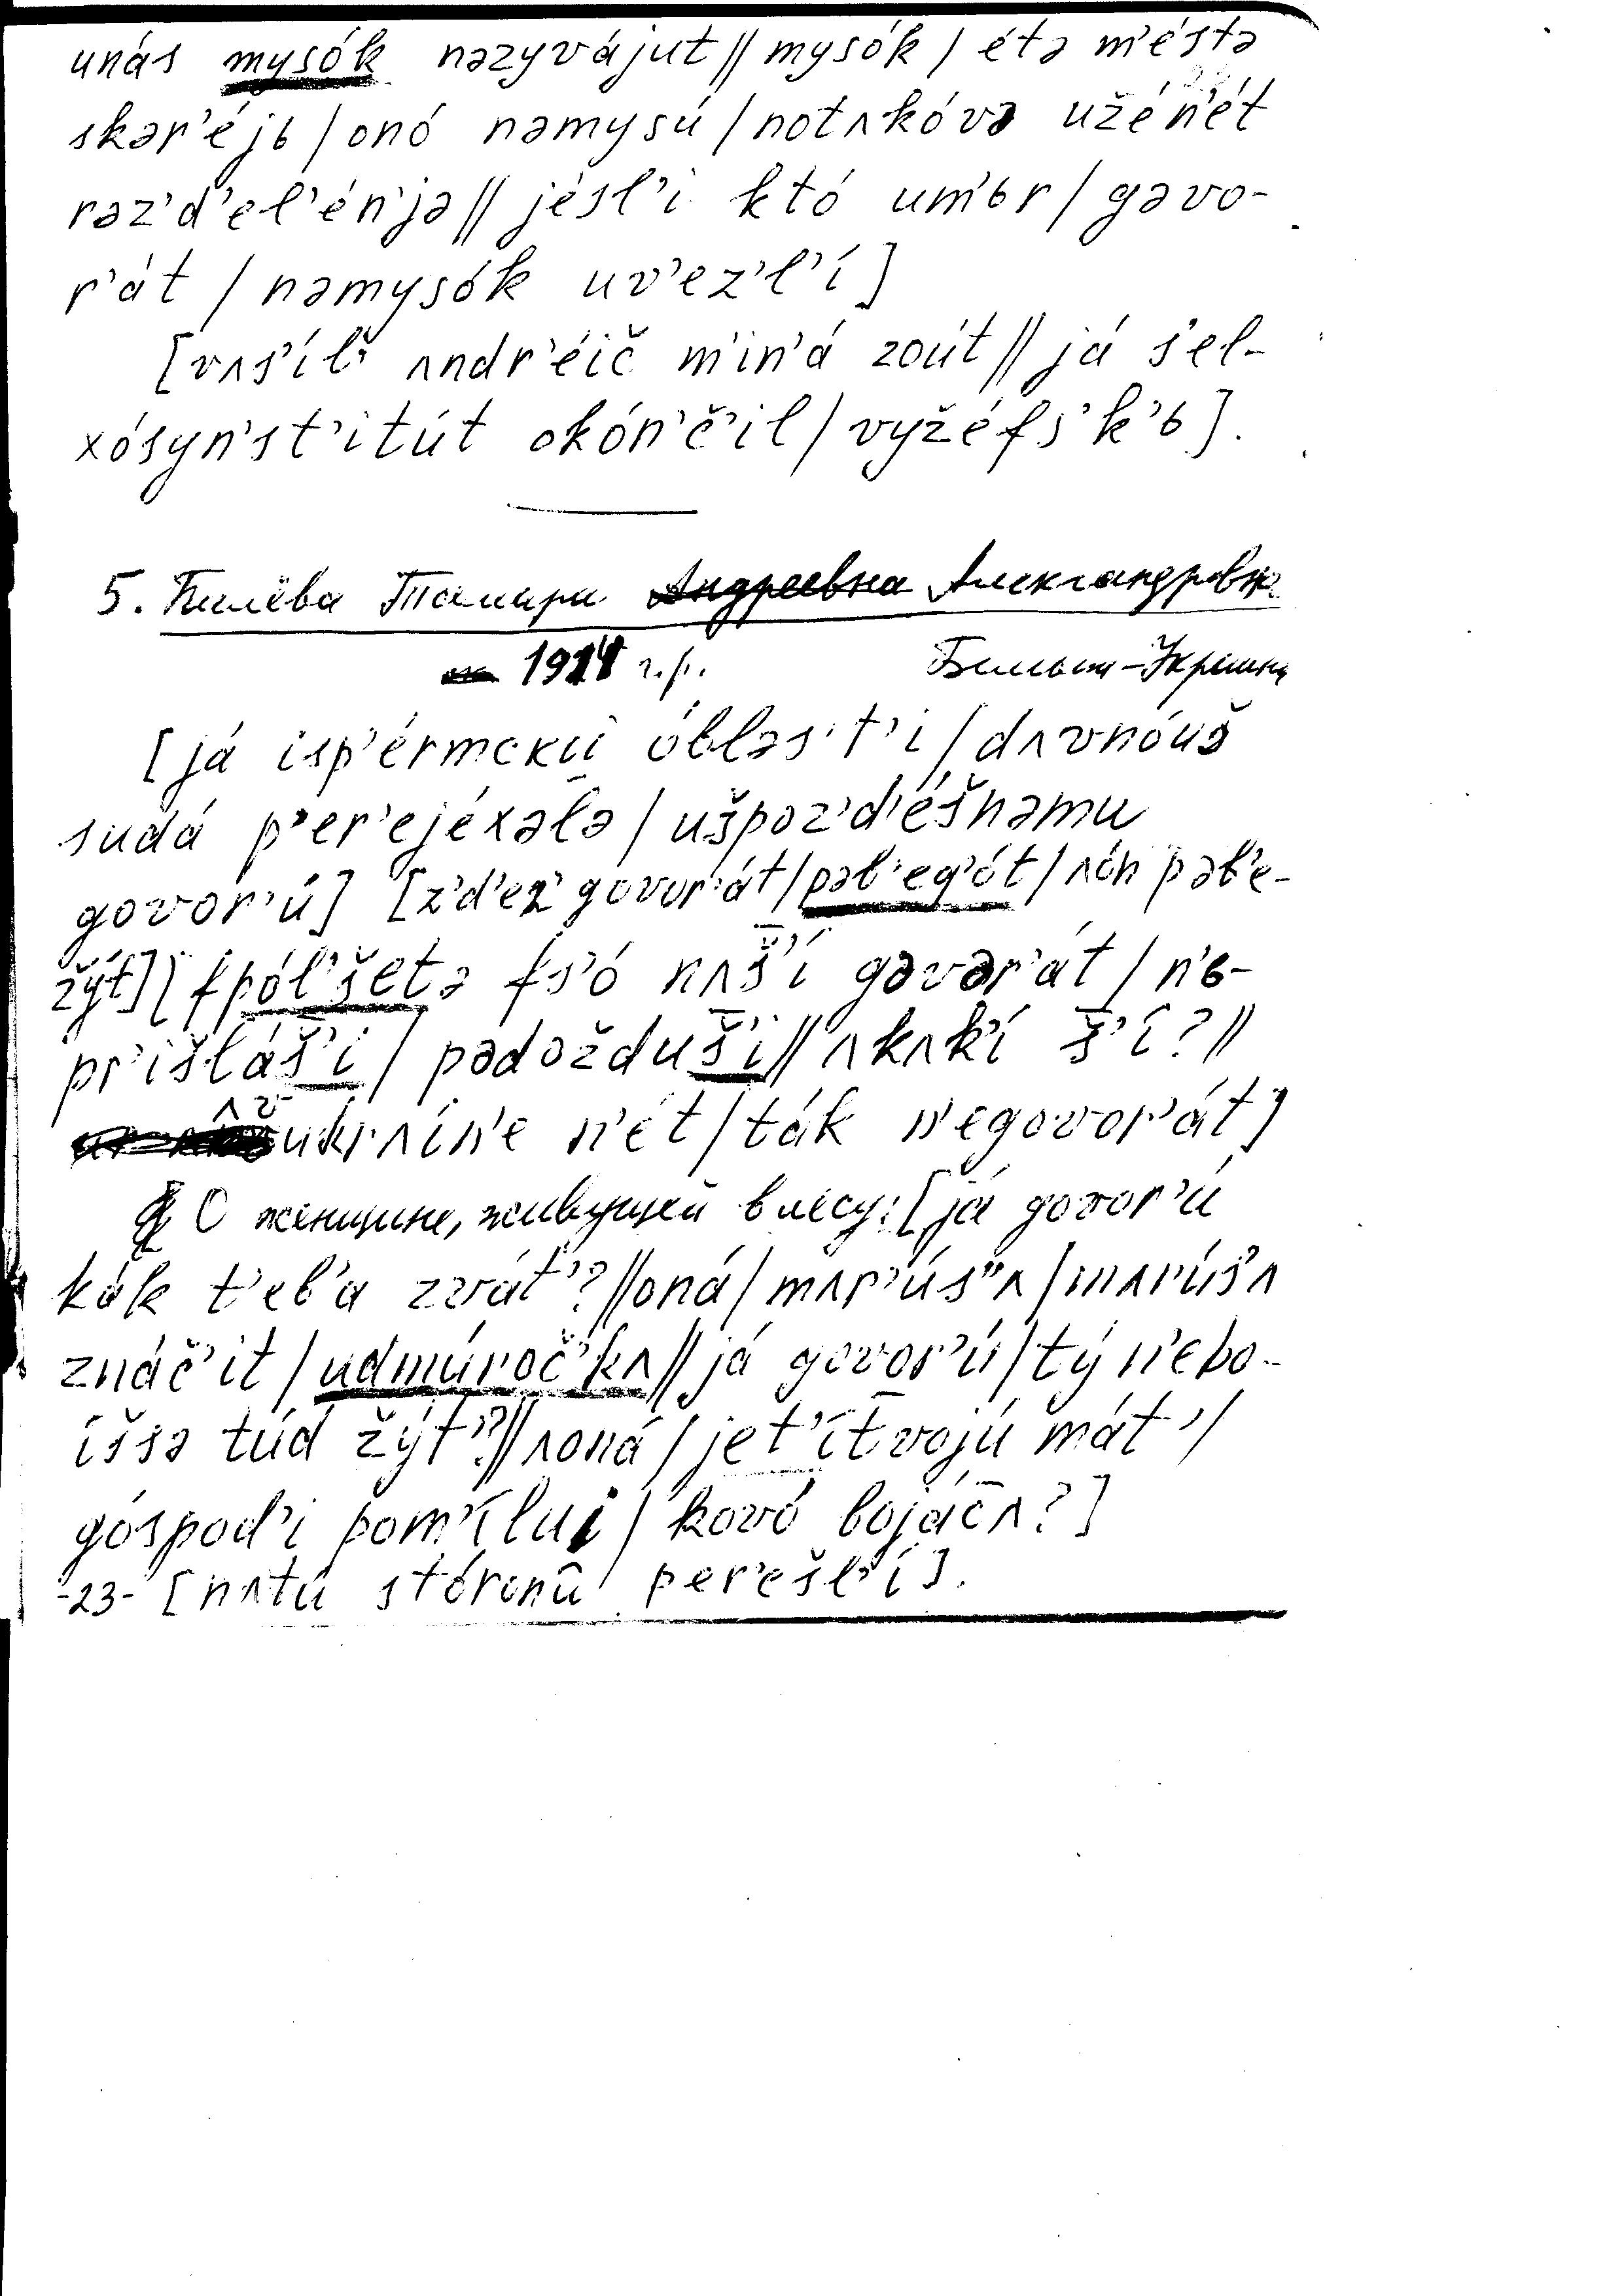 unás mysók nəzyvájut // mysók / étə m'éstə
skər'éjь / onó nəmysú / notʌkóvə užén'ét
rəz'd'el'én'jə // jésl'i któ um'ьr / gəvo-
r'át / nəmysók uv'ez'l'í ]
[ vʌs'íl' ʌndr'éič m'in'á zoút // já s'el-
xósyn'st'itút okón'č'il / vyžéfs'k'ь ].
5. Тамара Андреевна Александровна
1914 г.р.
[ já isp'érmскиĭ óbləs't'i / dʌvnóuš
sudá p'er'ejéxələ / ušpoz'd'éšnəmu
govor'ú ] [ z'd'ež govor'át / pəb'eg'ót / ʌón pəb'e-
žýt ] [ fpól'šetə fs'ó nʌš'í gəvər'át / n'ь-
pr'išláš'i / pədožduš'i // ʌkʌk'í š'í? //
ʌv ukrʌín'e n'ét / ták n'egovor'át ]
О женщине, живущей в лесу: [ já govor'ú
kák t'eb'a zvát'? // oná / mʌr'ús'ʌ / mʌrús'ʌ
znáč'it / udmúroč'kʌ // já govor'ú / tý n'ebo-
íšsə túd žýt'? // ʌoná / jet'ítvojú mát' /
góspod'i pom'ílui / kovó bojácʌ? ]
-23- [ nʌtú stóronu p'er'ešl'í ].